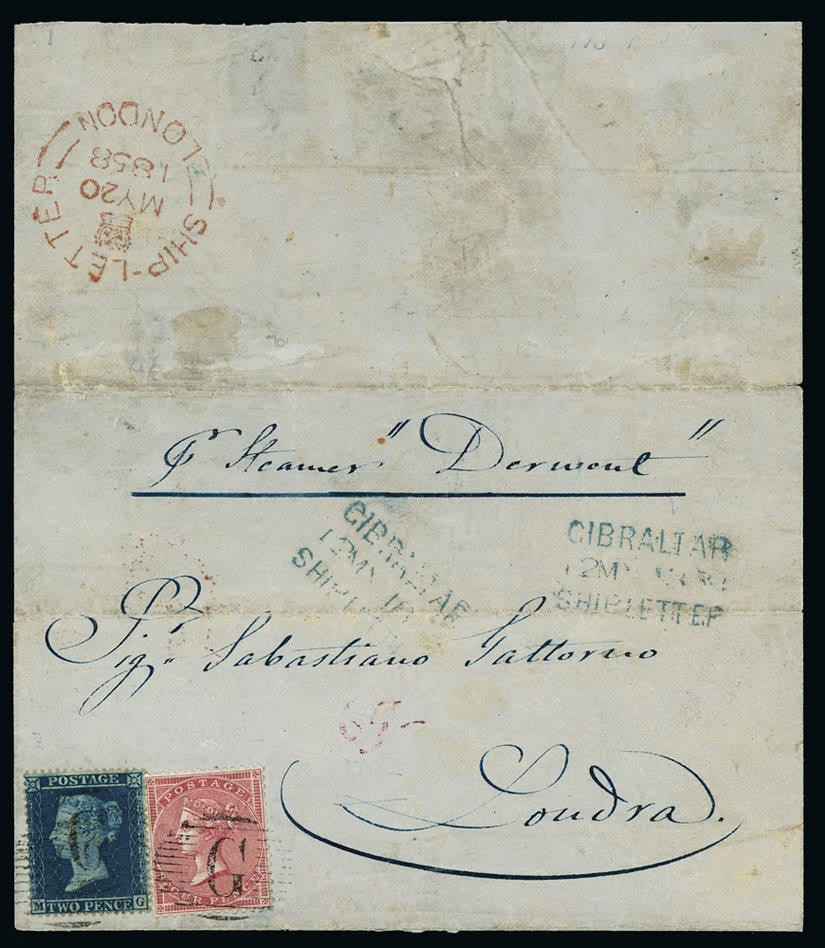 SHIP-LETTER LONDON
MY20
1858
Pr Steamer "Derwent"
GIBRALTAR
12MY
SHIP
GIBRALTAR
12MY
SHIPLETTER
Sigr Sabastiano Gattorno
Londra.
POSTAGE
G
TWO PENCE
M G
POSTAGE
G
FOUR PENCE